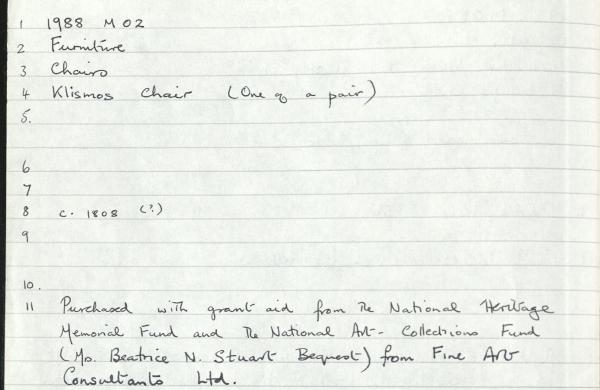 1 1988 M 02
2 Furniture
3 Chairs
4 Klismos Chair (One of a pair)
5.
6
7
8 c. 1808 (?)
9
10.
11 Purchased with grant aid from the National Heritage
Memorial Fund and the National Art-Collections Fund
(Ms. Beatrice N. Stuart Bequest) from Fine Art
Consultants Ltd.